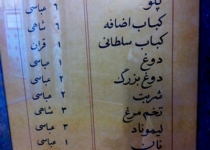 پلو ۶ عباسی
کباب اضافه ۶ شاهی
کباب سلطانی ۱ قران
دوغ ۱ عباسی
دوغ بزرگ ۲ عباسی
شربت ۲ عباسی
تخم مرغ ۳ شاهی
لیموناد ۳ عباسی
نان ۱ عباسی